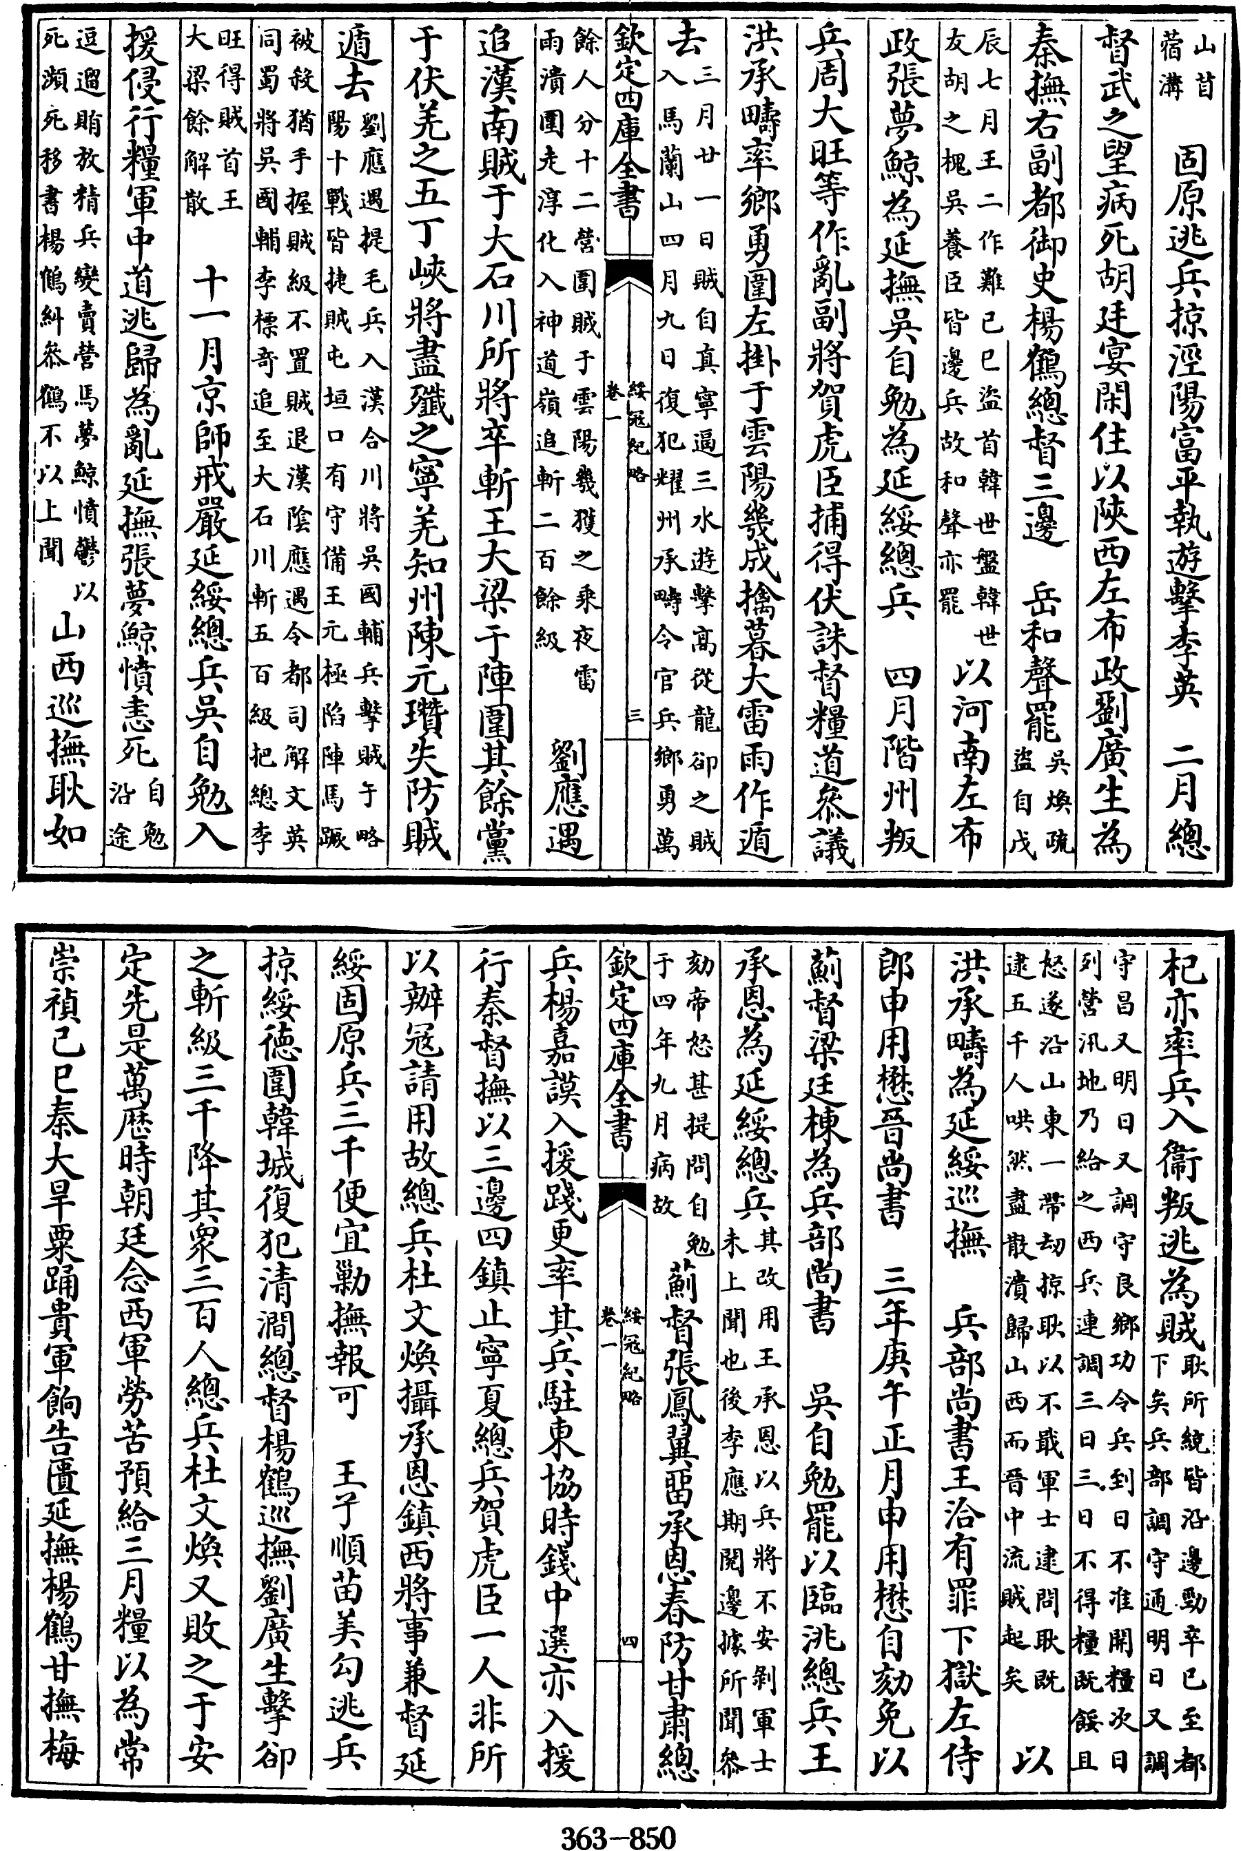 山苜
蓿溝
固原逃兵掠涇陽富平執遊擊李英　二月總
督武之望病死胡廷宴閑住以陝西左布政劉廣生為
秦撫右副都御史楊鶴總督三邊　岳和聲罷
吳煥疏
盜自戊
辰七月王二作難已巳盜首韓世盤韓世
友胡之槐吳養臣皆邊兵故和聲亦罷
以河南左布
政張夢鯨為延撫吳自勉為延綏總兵　四月階州叛
兵周大旺等作亂副將賀虎臣捕得伏誅督糧道叅議
洪承疇率鄉勇圍左掛于雲陽幾成擒暮大雷雨作遁
去
三月廿一日賊自真寧逼三水遊擊高從龍卻之賊
入馬蘭山四月九日復犯耀州承疇令官兵鄉勇萬
欽定四庫全書
綏寇紀略
卷一
三
餘人分十二營圍賊于雲陽幾獲之乘夜雷
雨潰圍走淳化入神道嶺追斬二百餘級
劉應遇
追漢南賊于大石川所將卒斬王大梁于陣圍其餘黨
于伏羌之五丁峽將盡殲之寧羌知州陳元瓚失防賊
遁去
劉應遇提毛兵入漢合川將吳國輔兵擊賊于略
陽十戰皆捷賊屯垣口有守備王元極陷陣馬蹶
被殺猶手握賊級不置賊退漢陰應遇令都司解文英
同蜀將吳國輔李標奇追至大石川斬五百級把總李
旺得賊首王
大梁餘解散
十一月京師戒嚴延綏總兵吳自勉入
援侵行糧軍中道逃歸為亂延撫張夢鯨憤恚死
自勉
沿途
逗遛賄放精兵變賣營馬夢鯨憤鬱以
死瀕死移書楊鶴糾叅鶴不以上聞
山西巡撫耿如
杞亦率兵入衞叛逃為賊
耿所統皆沿邊勁卒已至都
下矣兵部調守通明日又調
守昌又明日又調守良鄉功令兵到日不准開糧次日
列營汛地乃給之西兵連調三日三日不得糧既餒且
怒遂沿山東一帶刼掠耿以不戢軍士逮問耿既
逮五千人哄然盡散潰歸山西而晉中流賊起矣
以
洪承疇為延綏巡撫　兵部尚書王洽有罪下獄左侍
郎申用懋晉尚書　三年庚午正月申用懋自劾免以
薊督梁廷棟為兵部尚書　吳自勉罷以臨洮總兵王
承恩為延綏總兵
其改用王承恩以兵將不安剝軍士
未上聞也後李應期閱邊據所聞叅
劾帝怒甚提問自勉
于四年九月病故
薊督張鳳翼留承恩春防甘肅總
欽定四庫全書
綏寇紀略
卷一
四
兵楊嘉謨入援踐更率其兵駐東協時錢中選亦入援
行秦督撫以三邊四鎮止寧夏總兵賀虎臣一人非所
以辦寇請用故總兵杜文煥攝承恩鎮西將事兼督延
綏固原兵三千便宜勦撫報可　王子順苗美勾逃兵
掠綏德圍韓城復犯清澗總督楊鶴巡撫劉廣生擊卻
之斬級三千降其衆三百人總兵杜文煥又敗之于安
定先是萬歷時朝廷念西軍勞苦預給三月糧以為常
崇禎己巳秦大旱粟踊貴軍餉告匱延撫楊鶴甘撫梅
363-850